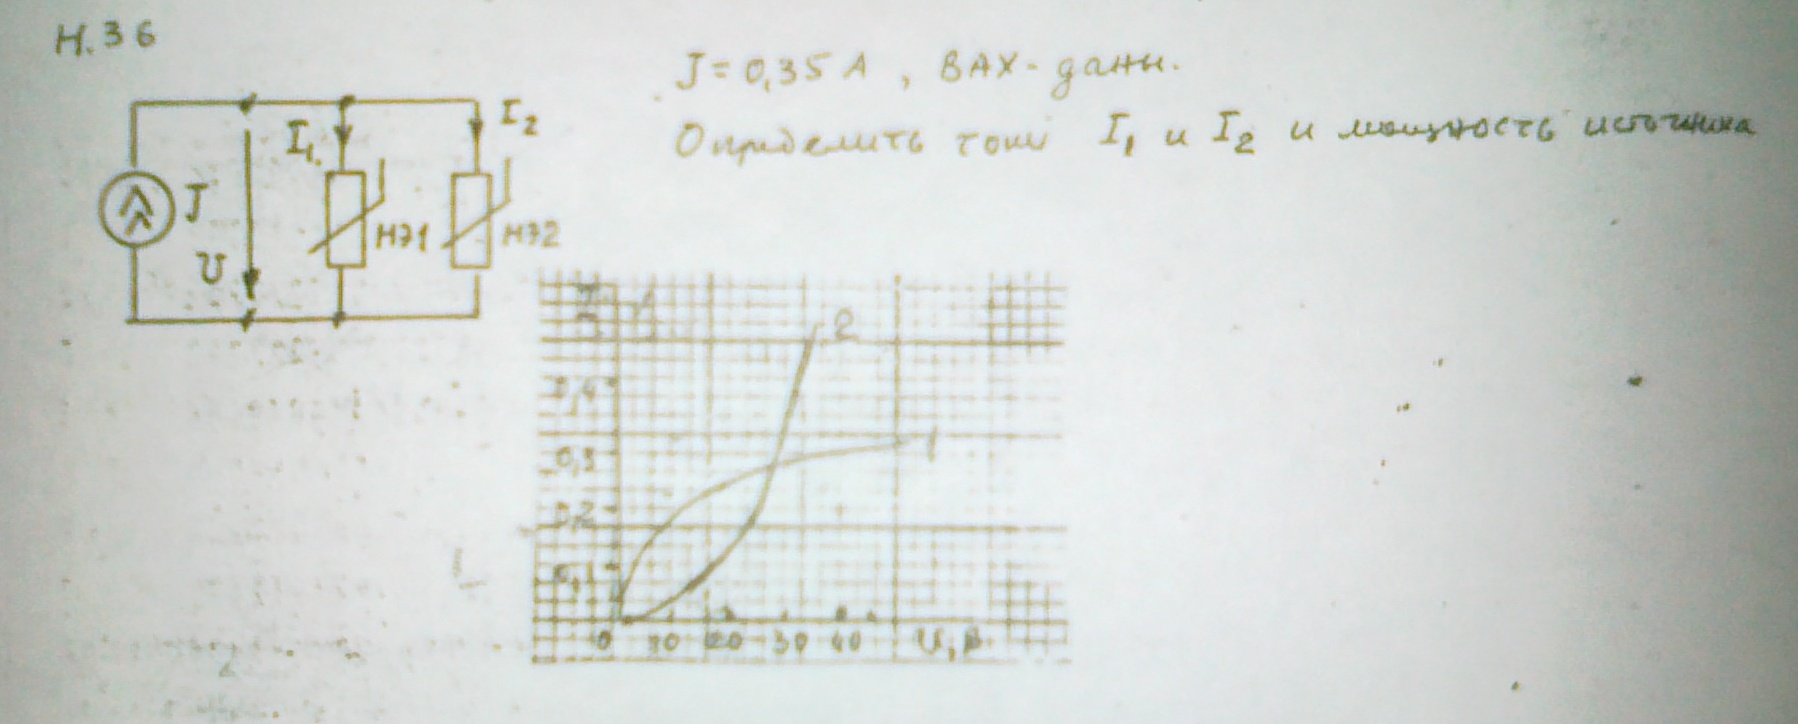 Н.36
J = 0,35 А , ВАХ - даны.
Определить токи I₁ и I₂ и мощность источника
I₁
I₂
J
U
НЭ1
НЭ2
2
0,4
1
0,3
0,2
0,1
0 10 20 30 40 U, В